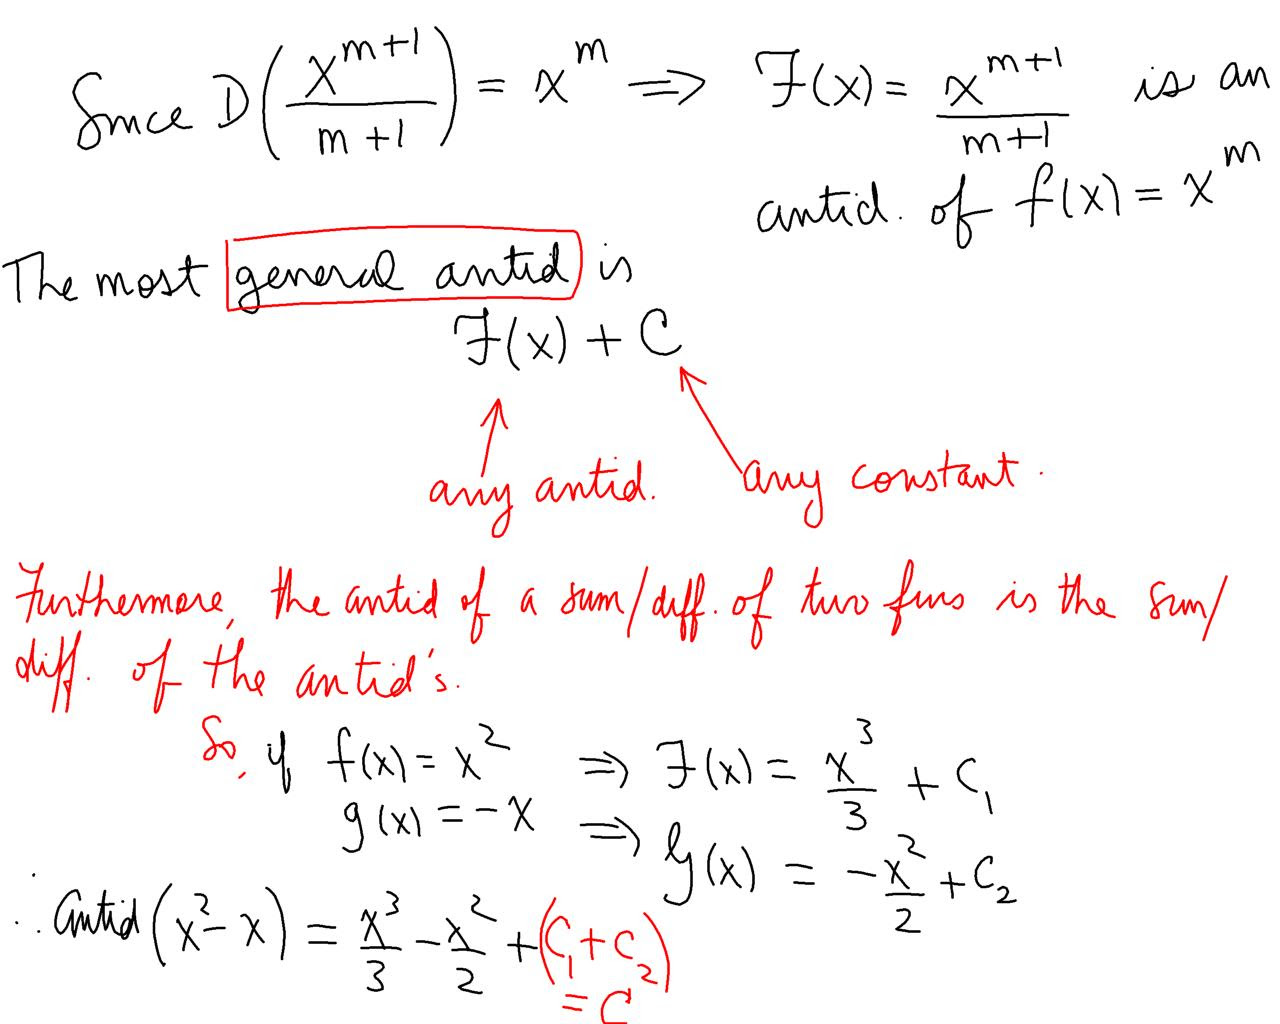 Since D(x^{m+1}/(m+1)) = x^m ⇒ F(x) = x^{m+1}/(m+1) is an
antid. of f(x) = x^m
The most general antid is
F(x) + C
any antid. any constant.
Furthermore, the antid of a sum/diff. of two fns is the sum/
diff. of the antid's.
So, if f(x) = x^2 ⇒ F(x) = x^3/3 + C_1
g(x) = -x ⇒ G(x) = -x^2/2 + C_2
∴ Antid(x^2 - x) = x^3/3 - x^2/2 + (C_1 + C_2)
= C